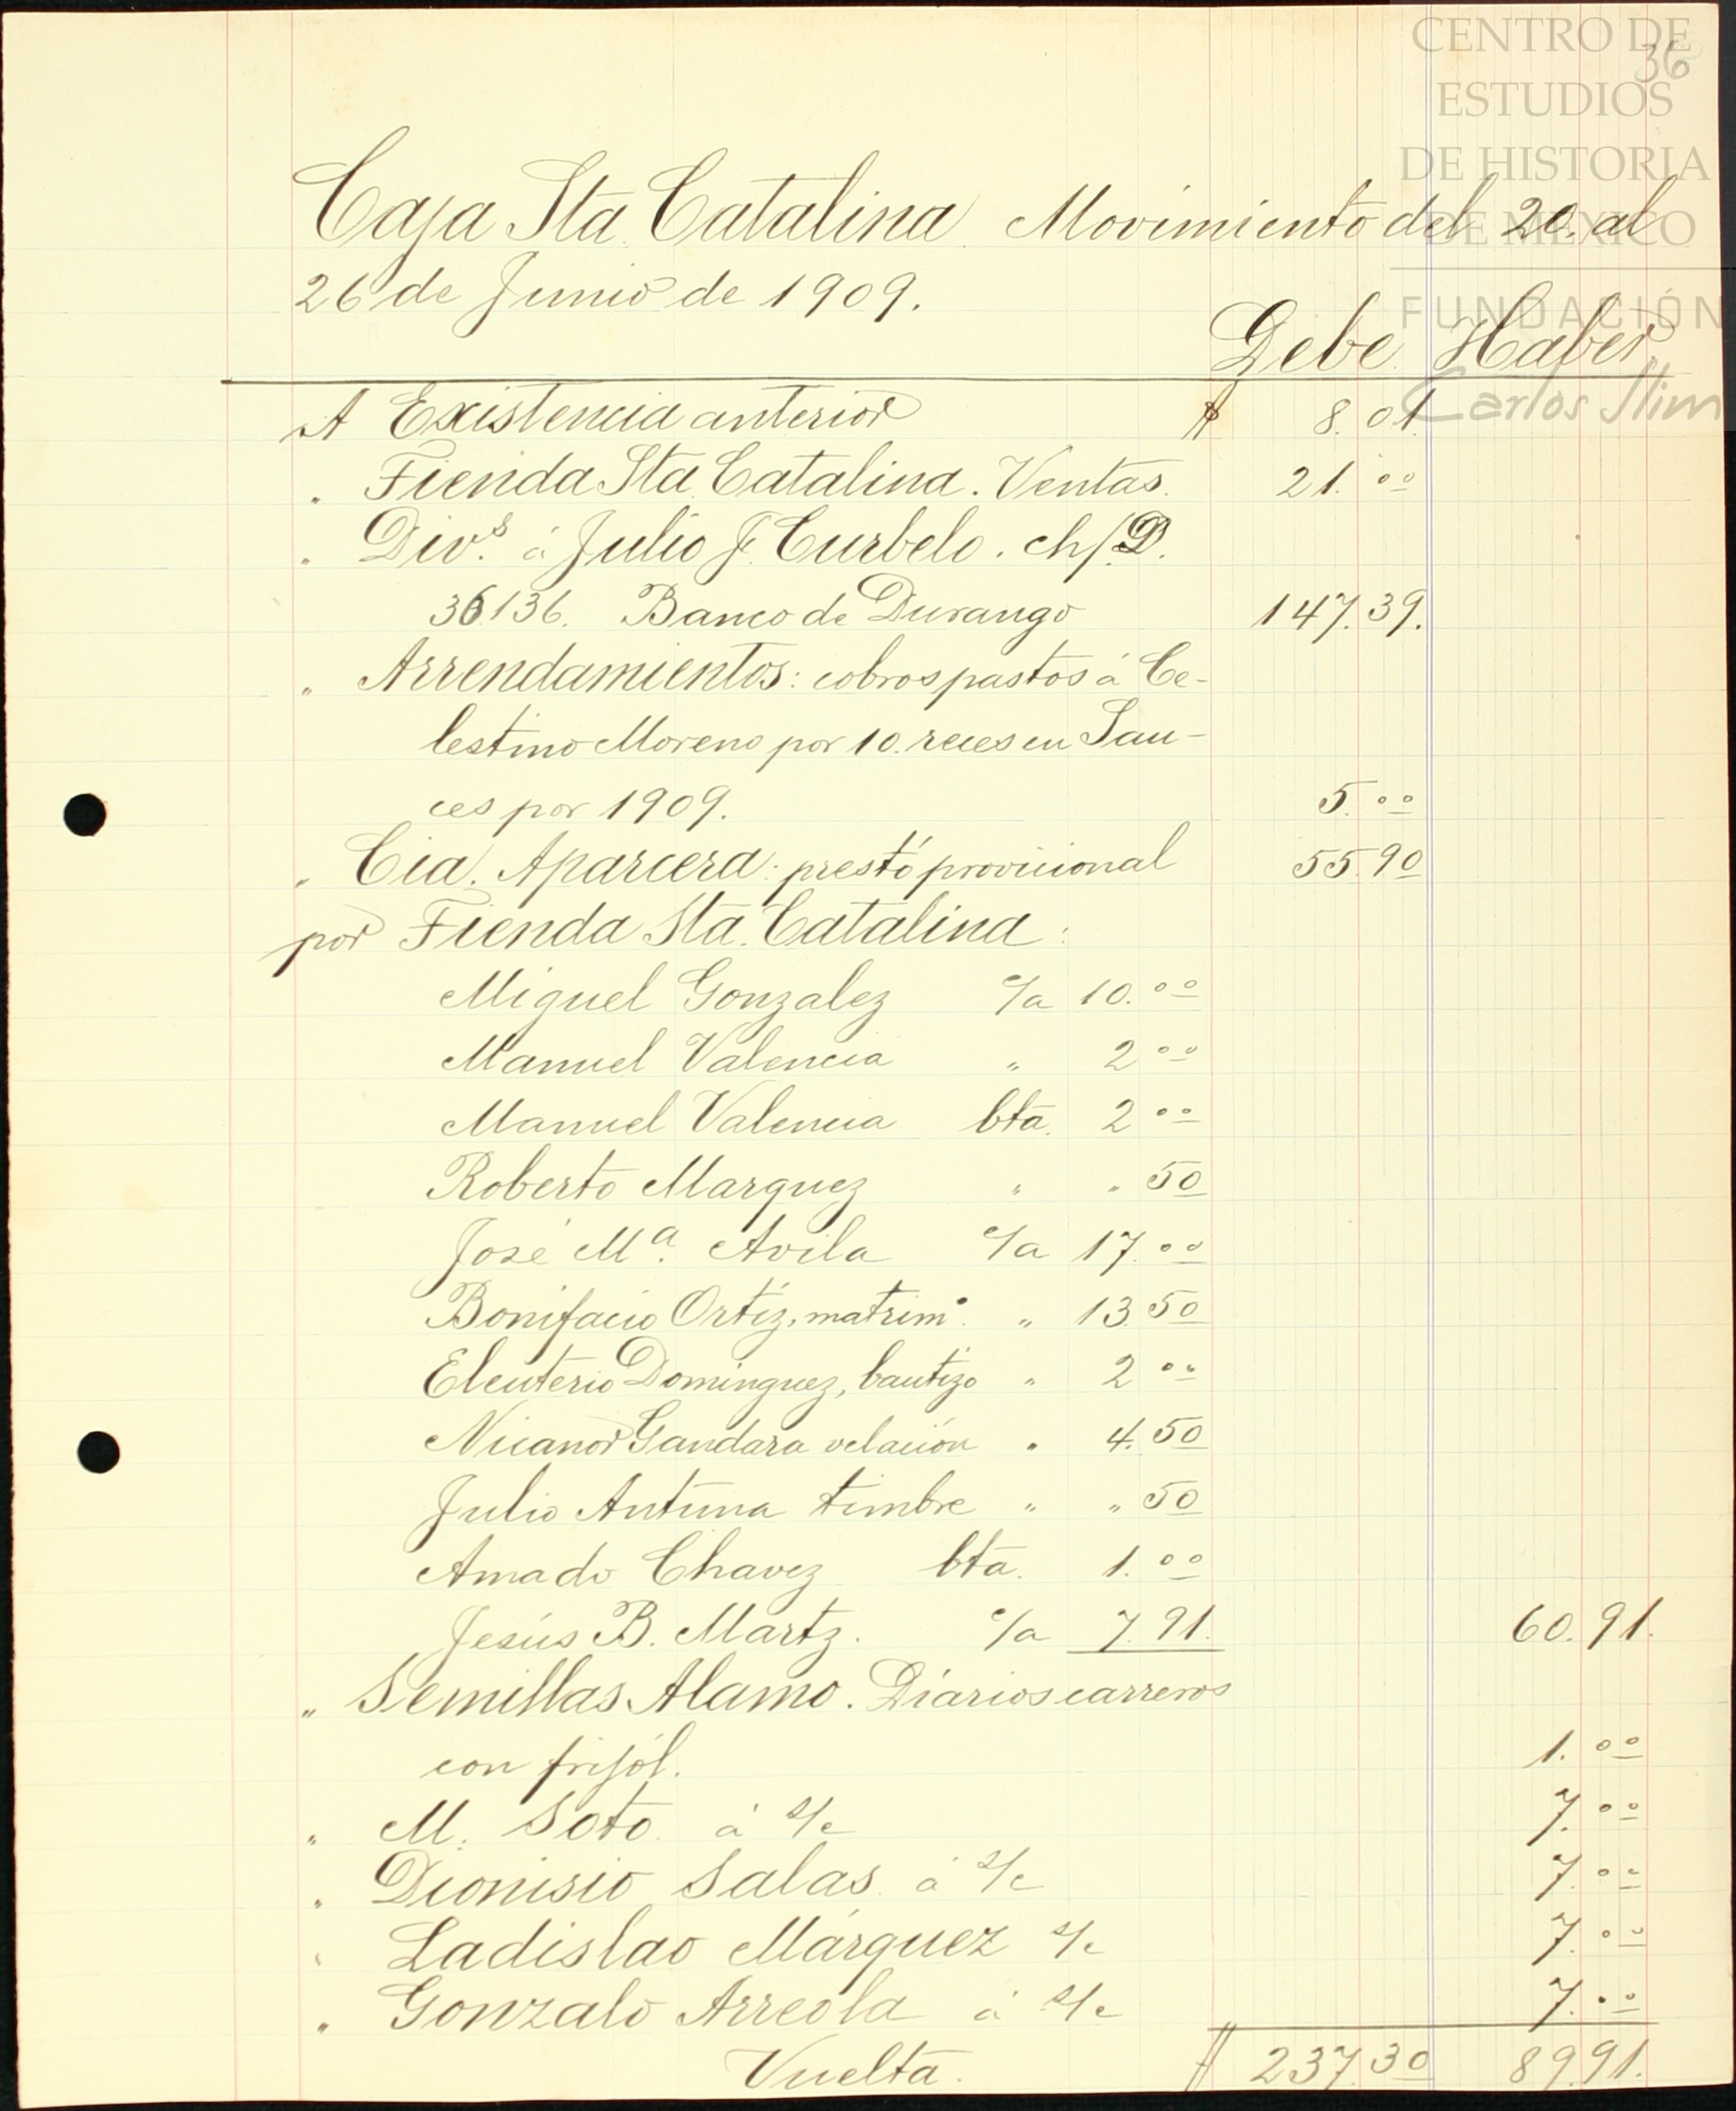 CENTRO DE
36
ESTUDIOS
DE HISTORIA
DE MÉXICO
FUNDACIÓN
Carlos Slim
Caja Sta Catalina Movimiento del 20. al
26 de Junio de 1909.
Debe Haber
A Existencia anterior $ 8.01.
" Tienda Sta Catalina. Ventas. 21.00
" Div.s á Julio F. Curbelo. ch/D.
36136. Banco de Durango 147.39.
" Arrendamientos: cobros pastos á Ce-
lestino Moreno por 10. reces en Sau-
ces por 1909. 5.00
" Cia. Aparcera: prestó provicional 55.90
por Tienda Sta. Catalina:
Miguel Gonzalez c/a 10.00
Manuel Valencia " 2 00
Manuel Valencia bta. 2 00
Roberto Marquez " " 50
José Ma. Avila c/a 17.00
Bonifacio Ortiz, matrimo. " 13.50
Eleuterio Dominguez, bautizo " 2 00
Nicanor Gandara velación " 4.50
Julio Antuna timbre " " 50
Amado Chavez bta. 1.00
Jesús B. Martz. c/a 7.91. 60.91.
" Semillas Alamo. Diarios carreros
con frijól. 1.00
" M. Soto á s/c 7.00
" Dionisio Salas á s/c 7.00
" Ladislao Márquez s/c 7.00
" Gonzalo Arreola á s/c 7.00
Vuelta. $ 237.30 89.91.